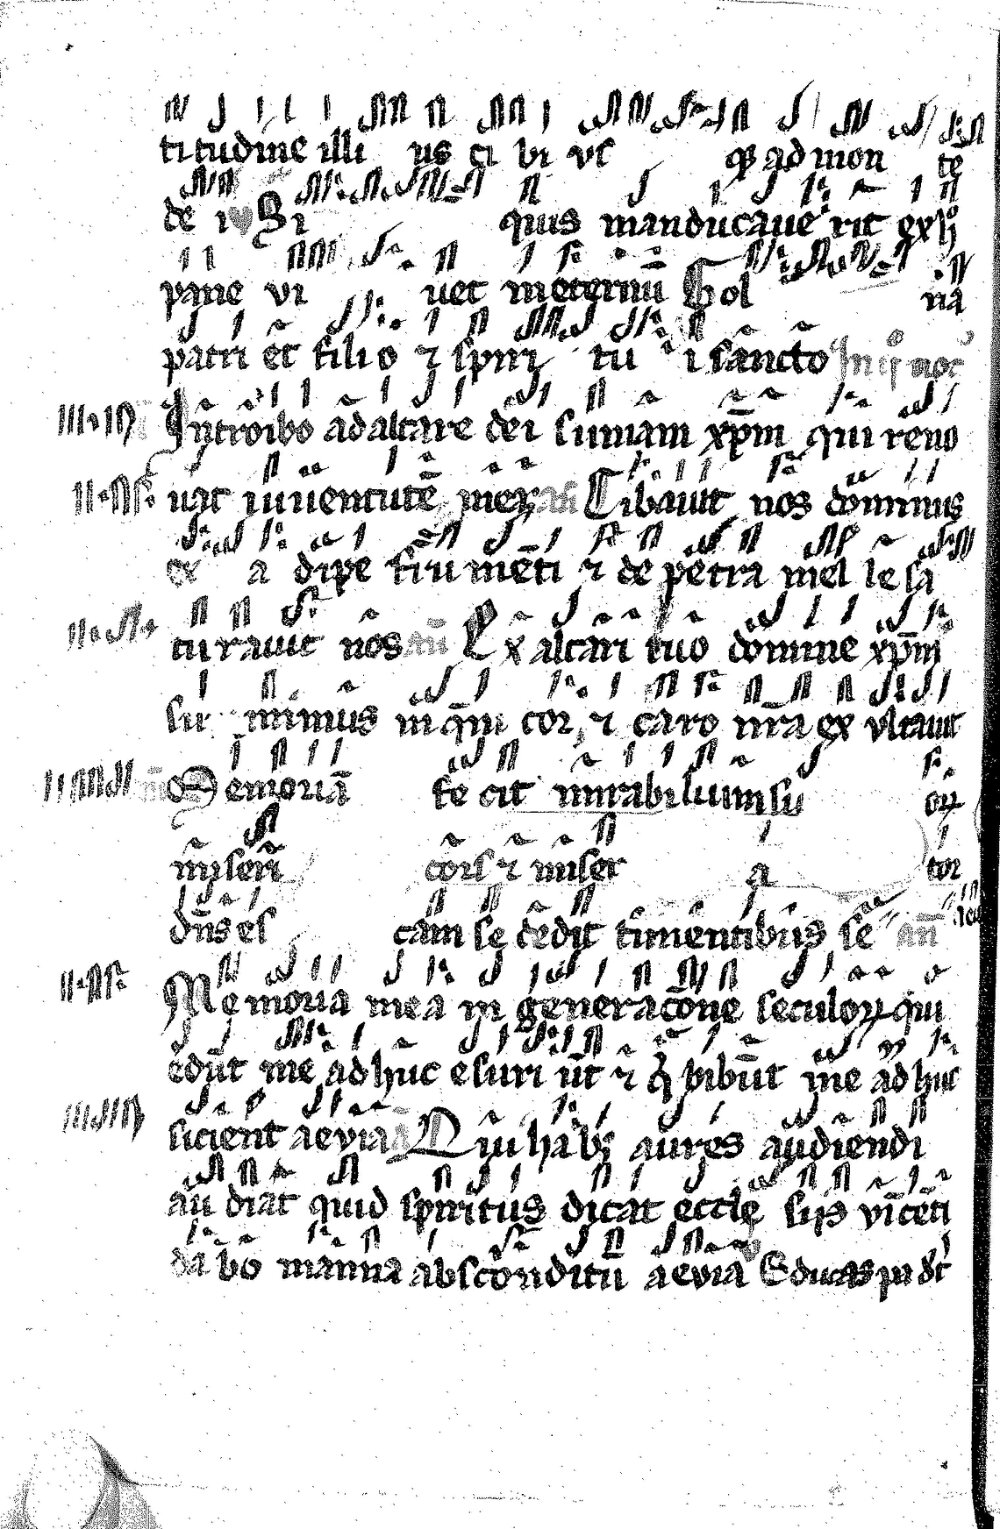 titudine illi us ci bi us ad mon te
de i Si quis manducaue rit ex h
pane vi uet in eternū Gol na
patri et filio ⁊ spiri tu i sancto In ij noc
Introibo ad altare dei sumam xp̄m qui reno
uat iuuentutē meā Cibauit nos dominus
ex a dipe frumēti ⁊ de petra melle sa
turauit nos an̄ Ex altari tuo domine xp̄m
su mimus in q̄m cor ⁊ caro nr̄a exultauit
Memoriā fe cit mirabilium su oꝝ
miseri cors ⁊ miser a tor
dn̄s es cam se dedit timentibus se an̄
Memoria mea in generacōne seculoꝝ qui
edūt me adhuc esuriūt ⁊ q̄ bibūt me adhuc
sicient aeuia Qui hab; aures audiendi
audiat quid spiritus dicat ecclesijs vicēti
dabo manna absconditū aeuia Educas